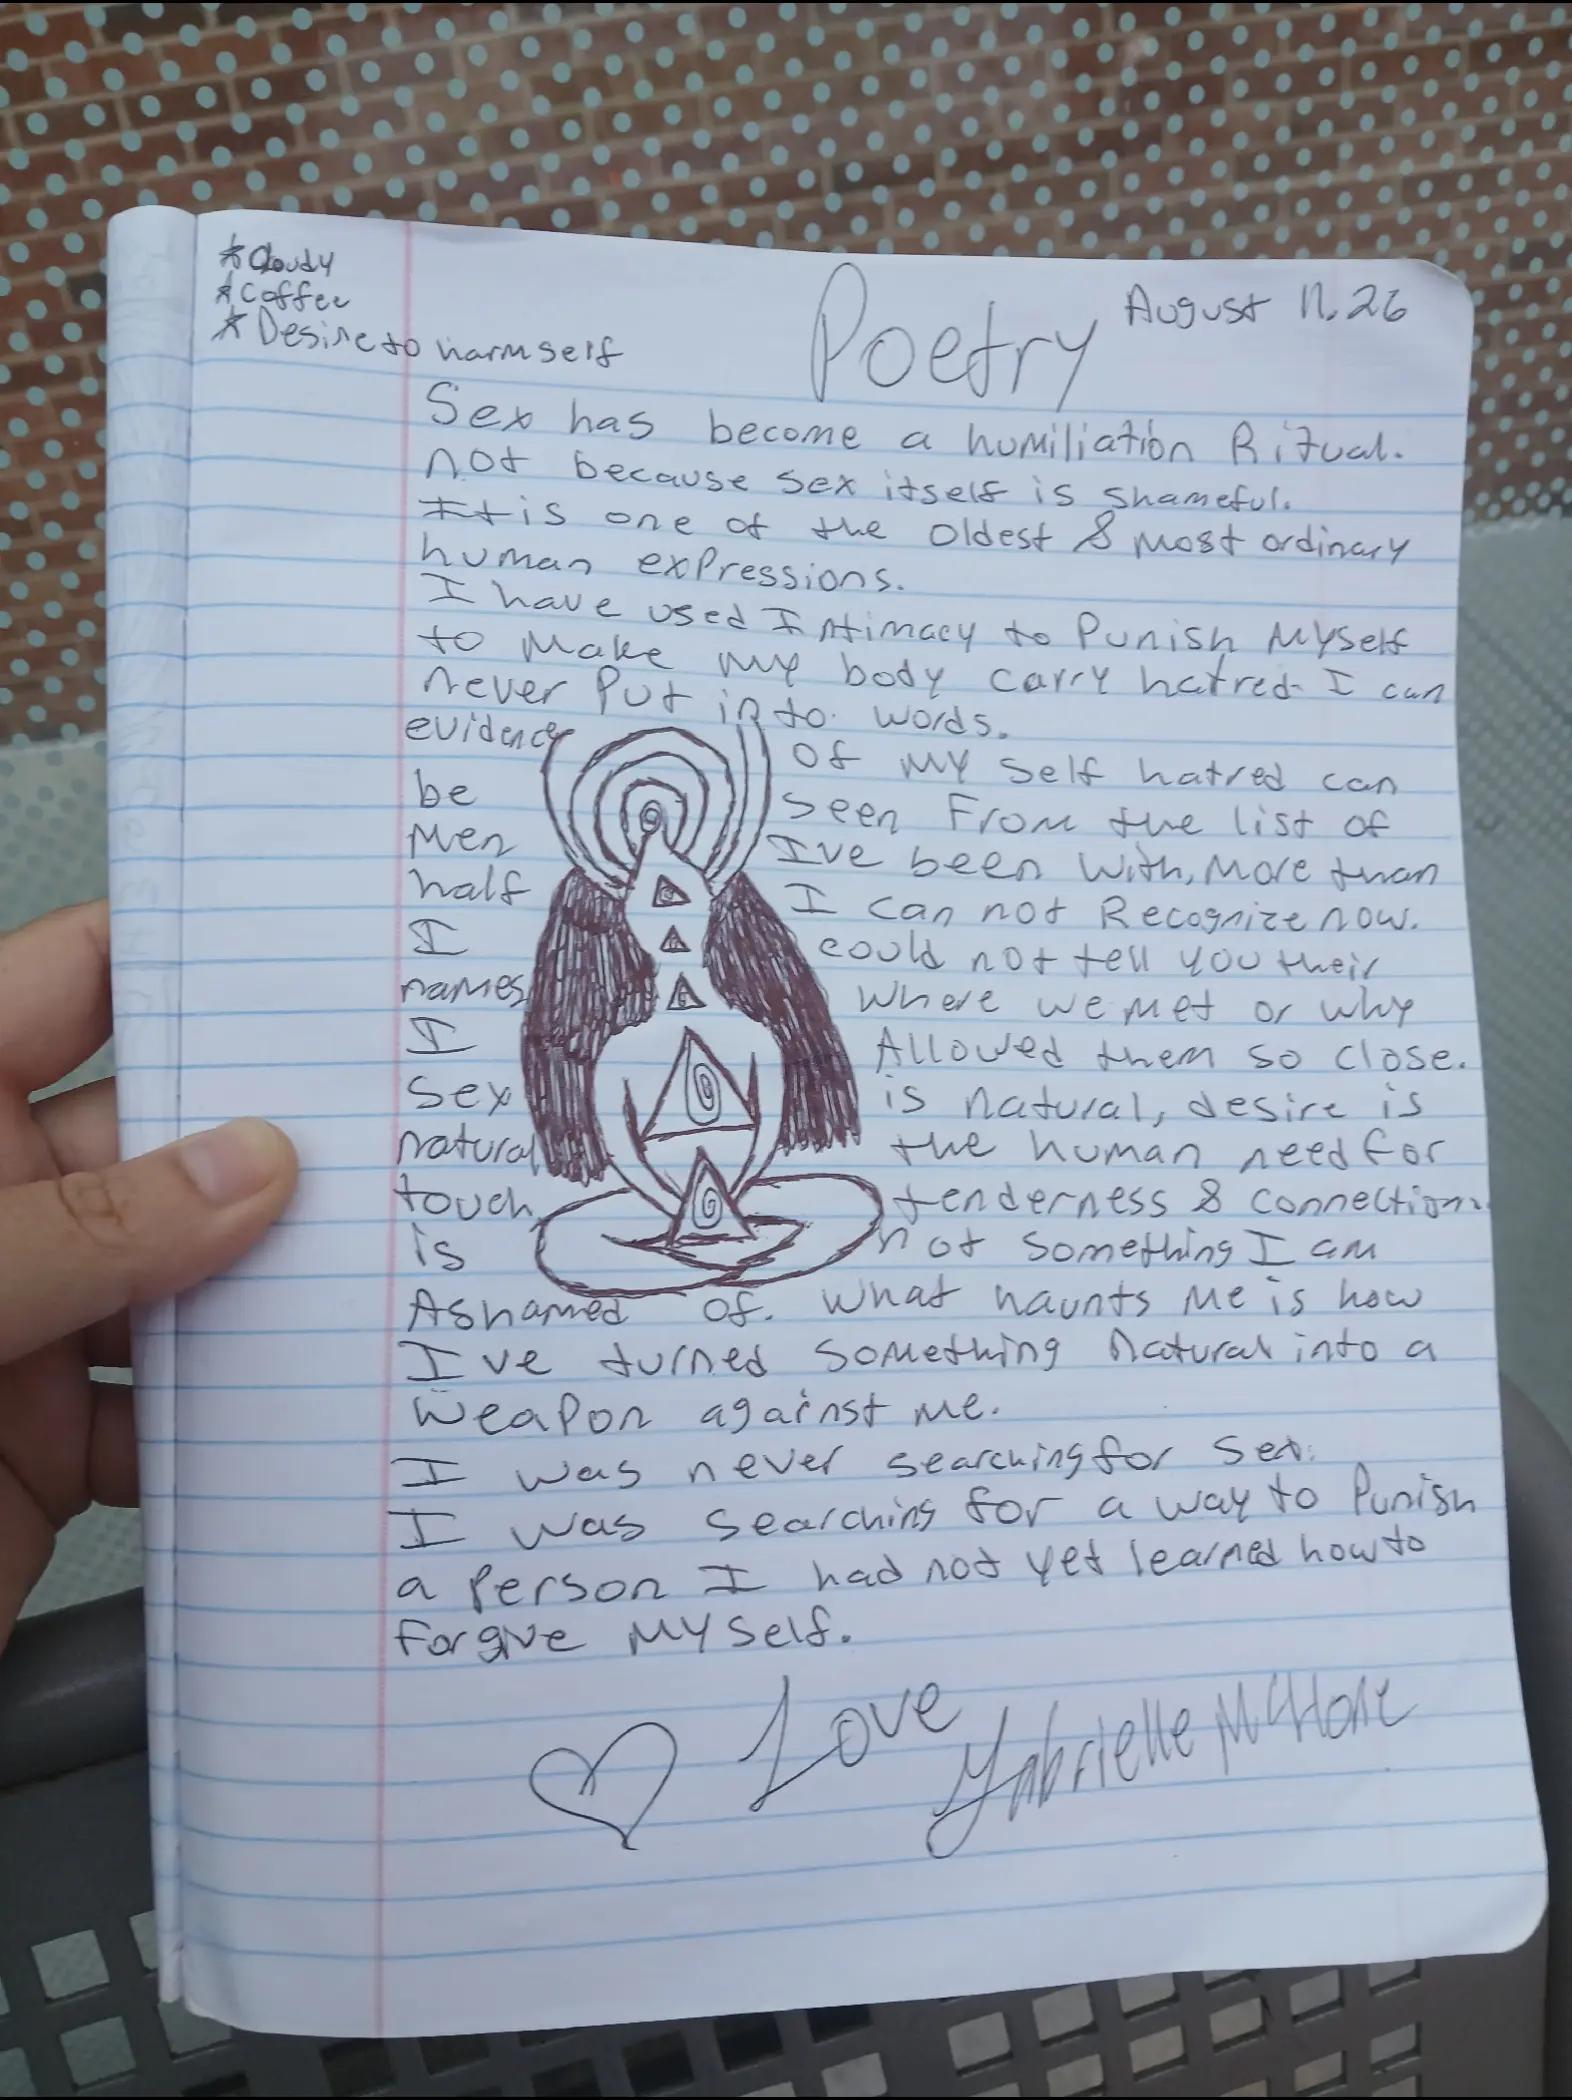 *Cloudy
*Coffee
*Desire to harm self
Poetry
August 11, 26
Sex has become a humiliation Ritual.
not because sex itself is shameful.
It is one of the oldest & most ordinary
human expressions.
I have used Intimacy to Punish Myself
to Make my body carry hatred I can
never Put into words.
evidence of my self hatred can
be seen From the list of
Men I've been with, More than
half I can not Recognize now.
I could not tell you their
names, where we met or why
I Allowed them so close.
Sex is natural, desire is
natural the human need for
touch, tenderness & connection
is not something I am
Ashamed of. What haunts Me is how
I've turned something natural into a
weapon against me.
I was never searching for sex.
I was searching for a way to Punish
a Person I had not yet learned how to
forgive My self.
Love
Gabrielle